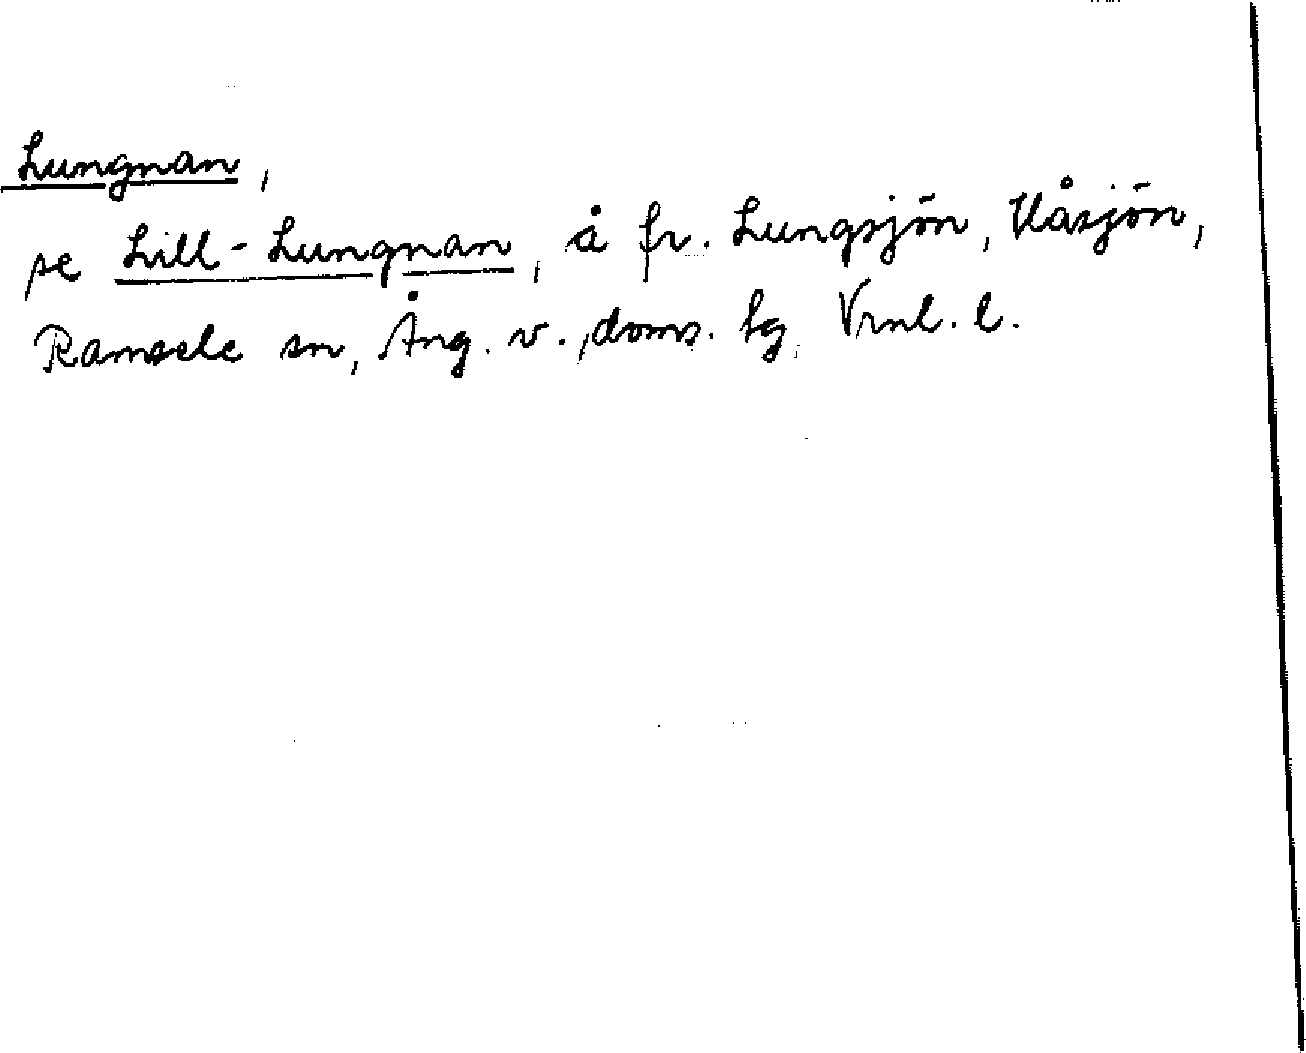 Lungnan,
se Lill-Lungnan, å fr. Lungsjön, Håsjön,
Ramsele sn, Ång. v., doms. lg, Vrnl. l.